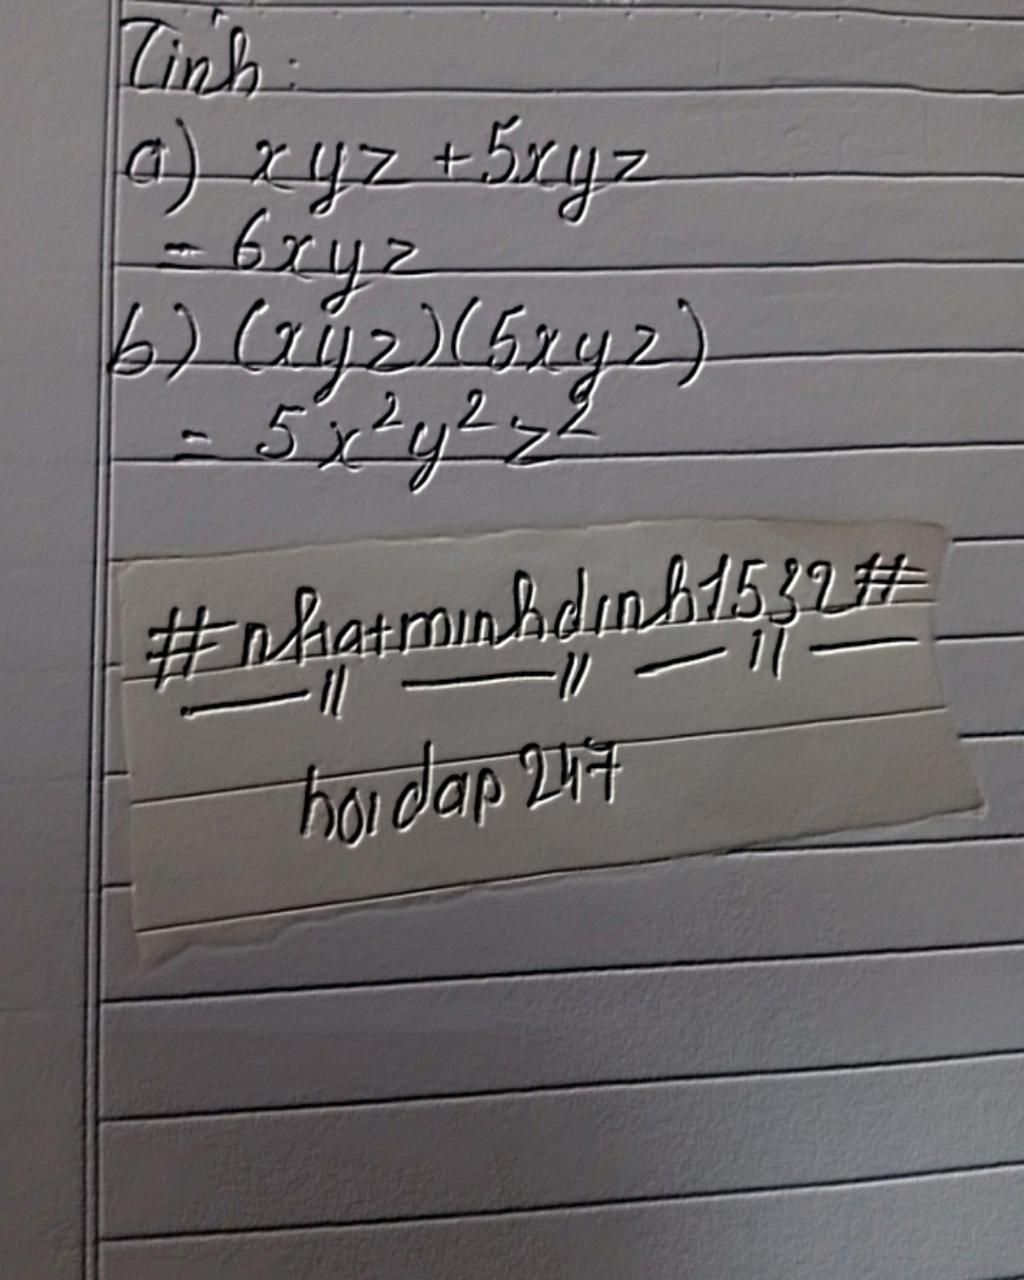 Tính:
a) xyz + 5xyz
= 6xyz
b) (xyz)(5xyz)
= 5x²y²z²
#nhatminhdinh1532#
hoidap247